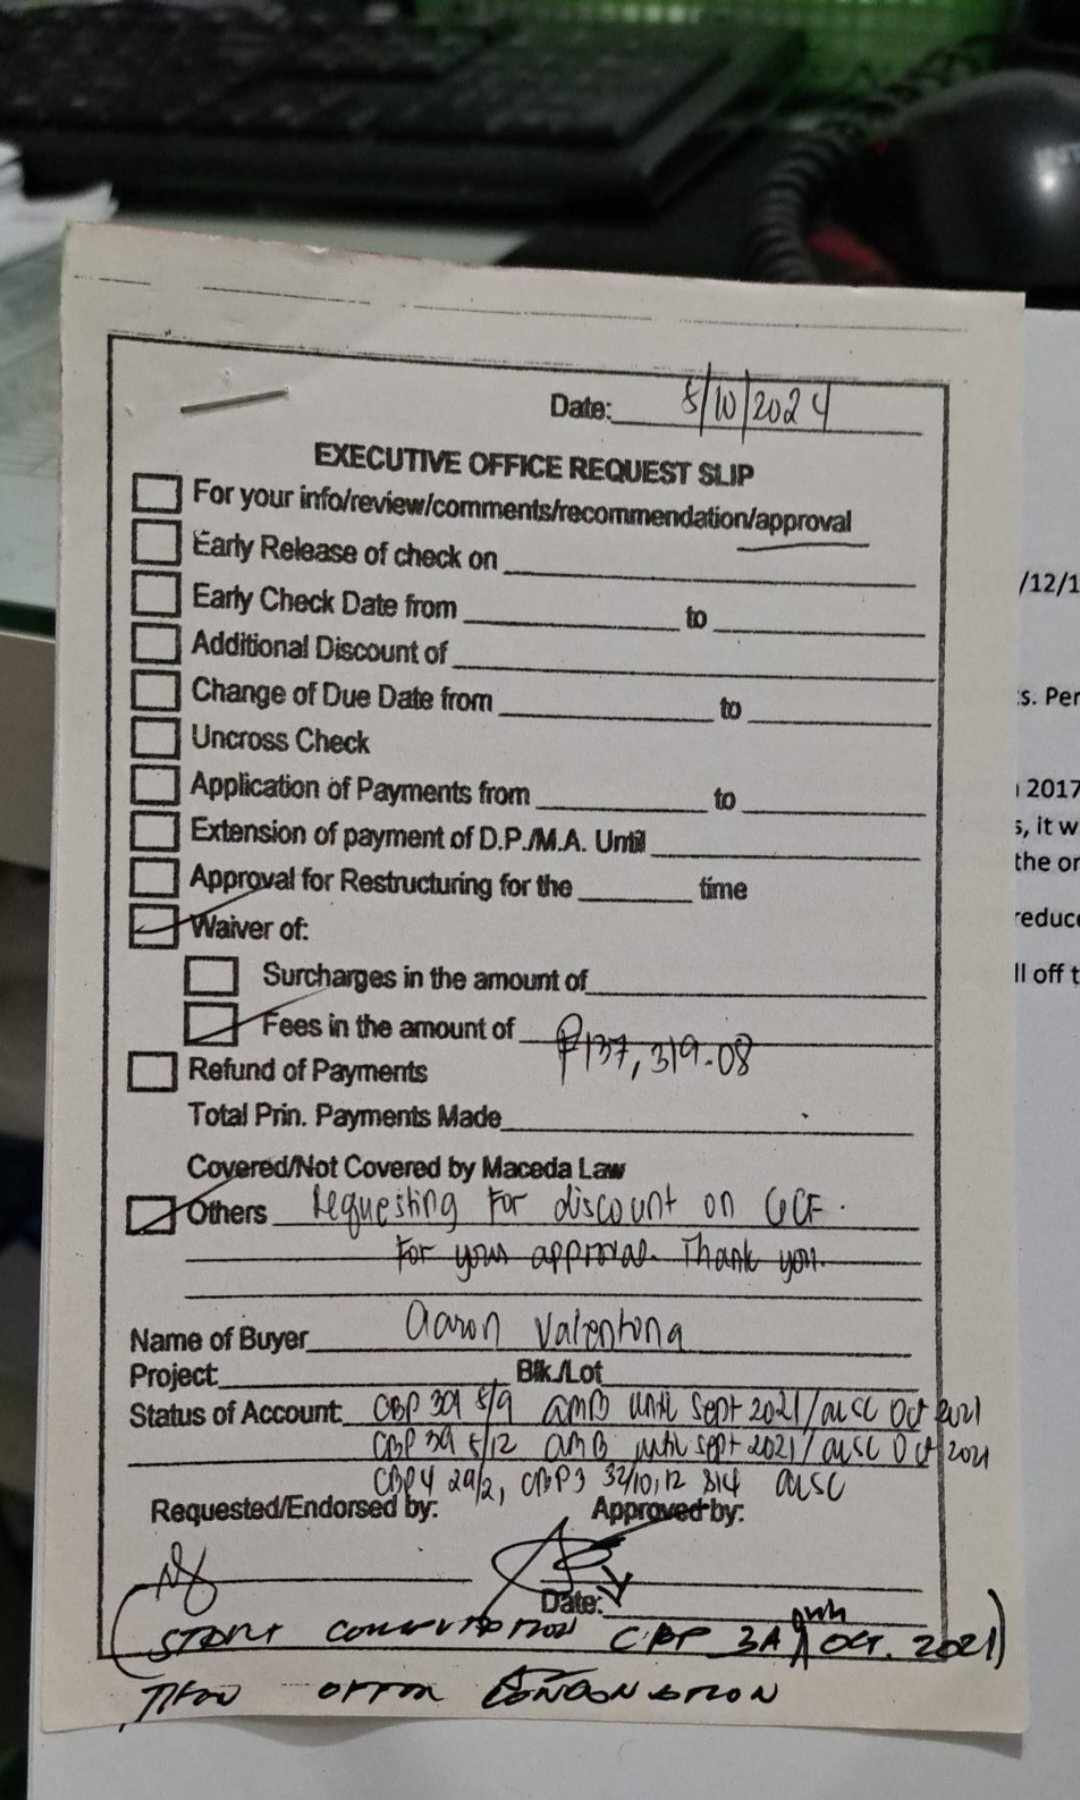 Date: 8/10/2024
EXECUTIVE OFFICE REQUEST SLIP
For your info/review/comments/recommendation/approval
Early Release of check on
Early Check Date from to
Additional Discount of
Change of Due Date from to
Uncross Check
Application of Payments from to
Extension of payment of D.P./M.A. Until
Approval for Restructuring for the time
Waiver of:
Surcharges in the amount of
Fees in the amount of ₱137,319.08
Refund of Payments
Total Prin. Payments Made
Covered/Not Covered by Maceda Law
Others Requesting for discount on GCF.
For your approval. Thank you.
Name of Buyer Aaron Valentona
Project: Blk./Lot
Status of Account: CBP 3A 8/9 AMB until Sept 2021/ Oct 2021
CBP 3A 5/12 AMB until Sept 2021/ Oct 2021
CBP4 29/2, CBP3 32/10,12
Requested/Endorsed by: Approved by:
Date:
(START COMPUTATION CBP 3A OCT. 2021)
THEN OFFER CONDONATION
/12/1
s. Per
2017
s, it w
the or
reduce
ll off t